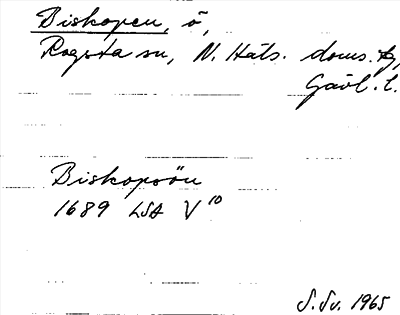 Biskopen, ö,
Rogsta sn, N. Häls. doms.
Gävl. l.
Biskopsön
1689 LSA V 10
S. Sv. 1965